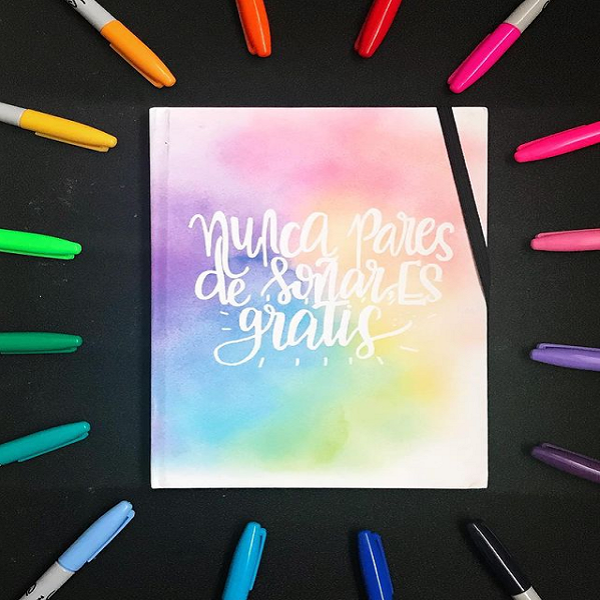 Nunca pares
de soñar, ES
gratis